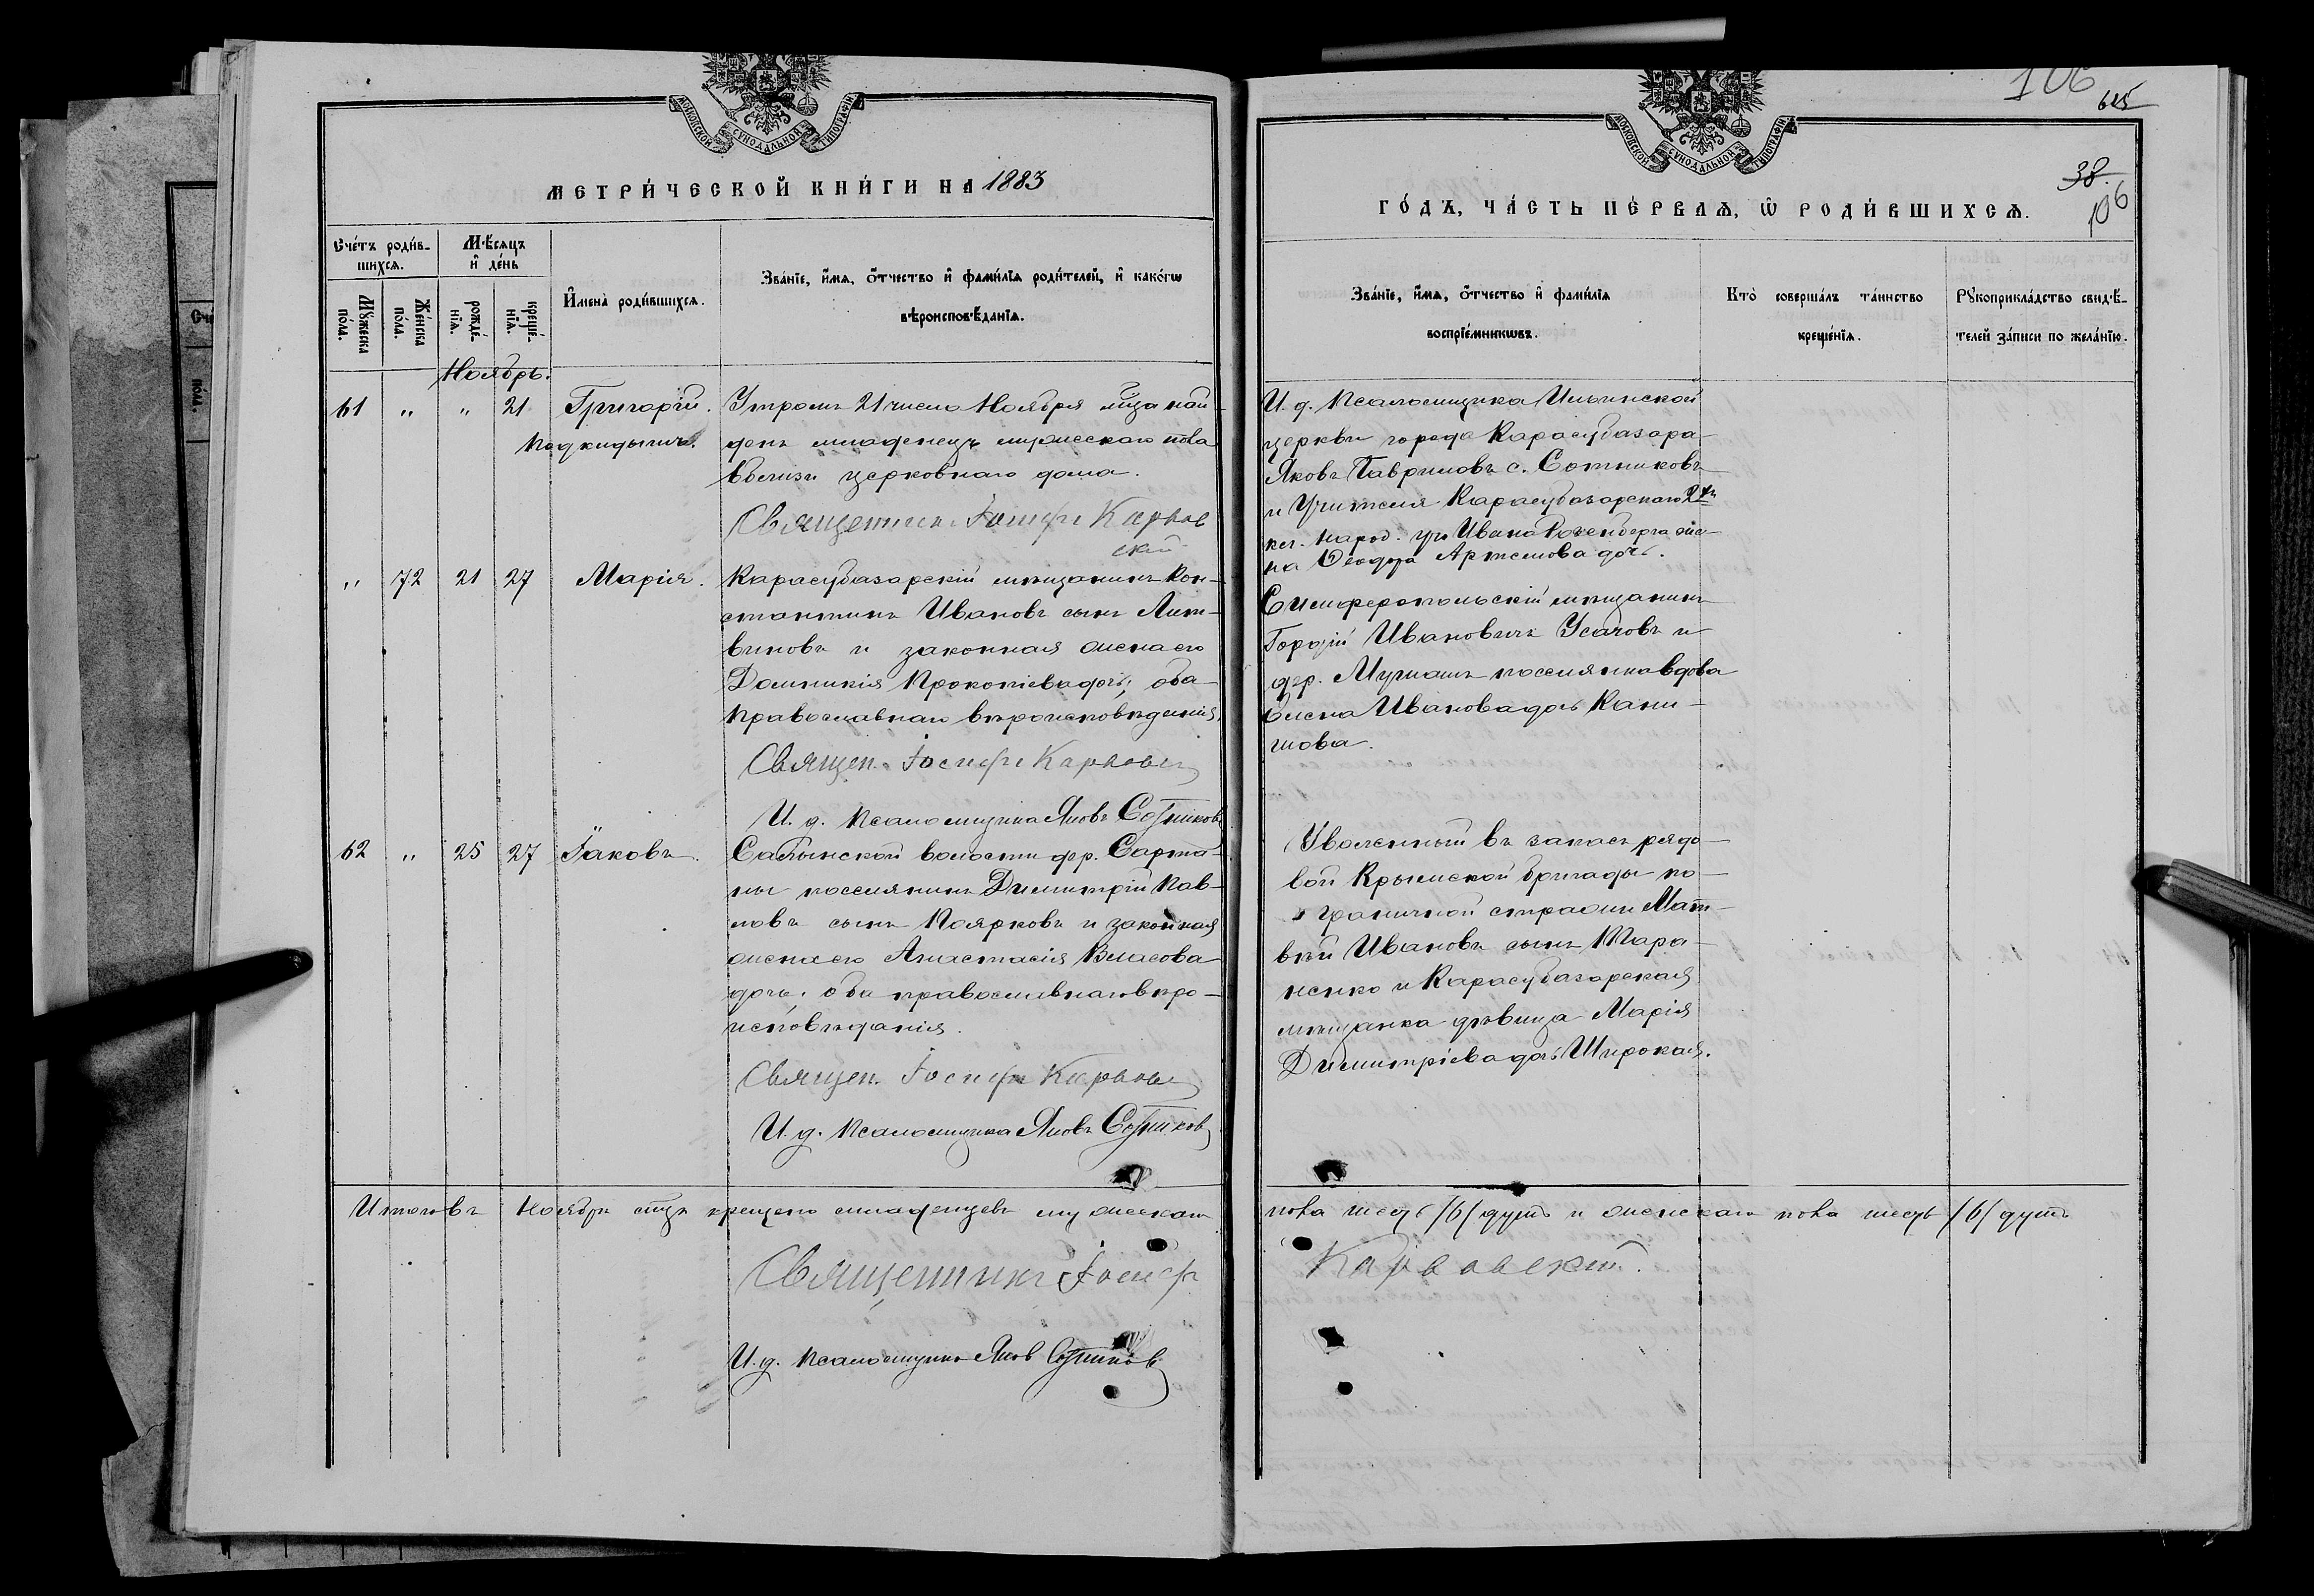 МОСКОВСКОЙ СѴНОДАЛЬНОЙ ТИПОГРАФІИ
МЕТРИ́ЧЕСКОЙ КНИ́ГИ НА 1883
Сче́тъ роди́в-
шихсѧ.
Мѣ́сѧцъ
и҆ де́нь
Мꙋ́жеска
по́ла.
Же́нска
по́ла.
рожде́-
нїѧ.
креще́-
нїѧ.
И҆мена̀ роди́вшихсѧ.
Зва́нїе, и҆́мѧ, ѻ҆́тчество и҆ фами́лїѧ роди́телей, и҆ како́гѡ
вѣроисповѣ́данїѧ.
Ноябрь.
61 " " 21 Григорій.
подкидышъ.
Утромъ 21 числа Ноября м-ца най-
денъ младенецъ мужескаго пола
вблизи церковнаго дома.
Священникъ Іосифъ Карвов
скій
" 72 21 27 Марія.
Карасубазарскій мѣщанинъ Кон-
стантинъ Ивановъ сынъ Лит-
виновъ и законная жена его
Домникія Прокопіева дочь; оба
православнаго вѣроисповѣданія.
Священ. Іосифъ Карвовс
И. д. псаломщика Яковъ Сотниковъ
62 " 25 27 Іаковъ.
Салынской волости дер. Сарта-
ны поселянинъ Димитрій Пав-
ловъ сынъ Поярковъ и законная
жена его Анастасія Власова
дочь; оба православнаго вѣро-
исповѣданія.
Священ. Іосифъ Карвовс
И. д. псаломщика Яковъ Сотников
Итого въ Ноябрѣ м-цѣ крещено младенцевъ мужескаго
Священникъ Іосифъ
И. д. псаломщика Яков Сотников
106
625
38.
106
МОСКОВСКОЙ СѴНОДАЛЬНОЙ ТИПОГРАФІИ
ГО́ДЪ, ЧА́СТЬ ПЕ́РВАѦ, Ѡ҆ РОДИ́ВШИХСѦ.
Зва́нїе, и҆́мѧ, ѻ҆́тчество и҆ фами́лїѧ
воспрїе́мникѡвъ.
Кто̀ соверша́лъ та́инство
креще́нїѧ.
Рꙋкоприкла́дство свидѣ́-
телей за́писи по жела́нїю.
И. д. псаломщика Ильинской
церкви города Карасубазара
Яковъ Гавриловъ с. Сотниковъ
и Учителя Карасубазарскаго 2хъ
кл. народ. уч. Ивана Розенберга же-
на Ѳеодора Артемова дочь.
Симферопольскій мѣщанинъ
Гордій Ивановичъ Усачовъ и
дер. поселянка вдова
Елена Иванова дочь Кани-
шова.
Уволенный въ запасъ рядо-
вой Крымской бригады по-
граничной стражи Мат-
вѣй Ивановъ сынъ Мара-
ненко и Карасубазарская
мѣщанка дѣвица Марія
Димитріева дочь Широкая.
пола шесть /6/ душъ и женскаго пола шесть /6/ душъ
Карвовскій.